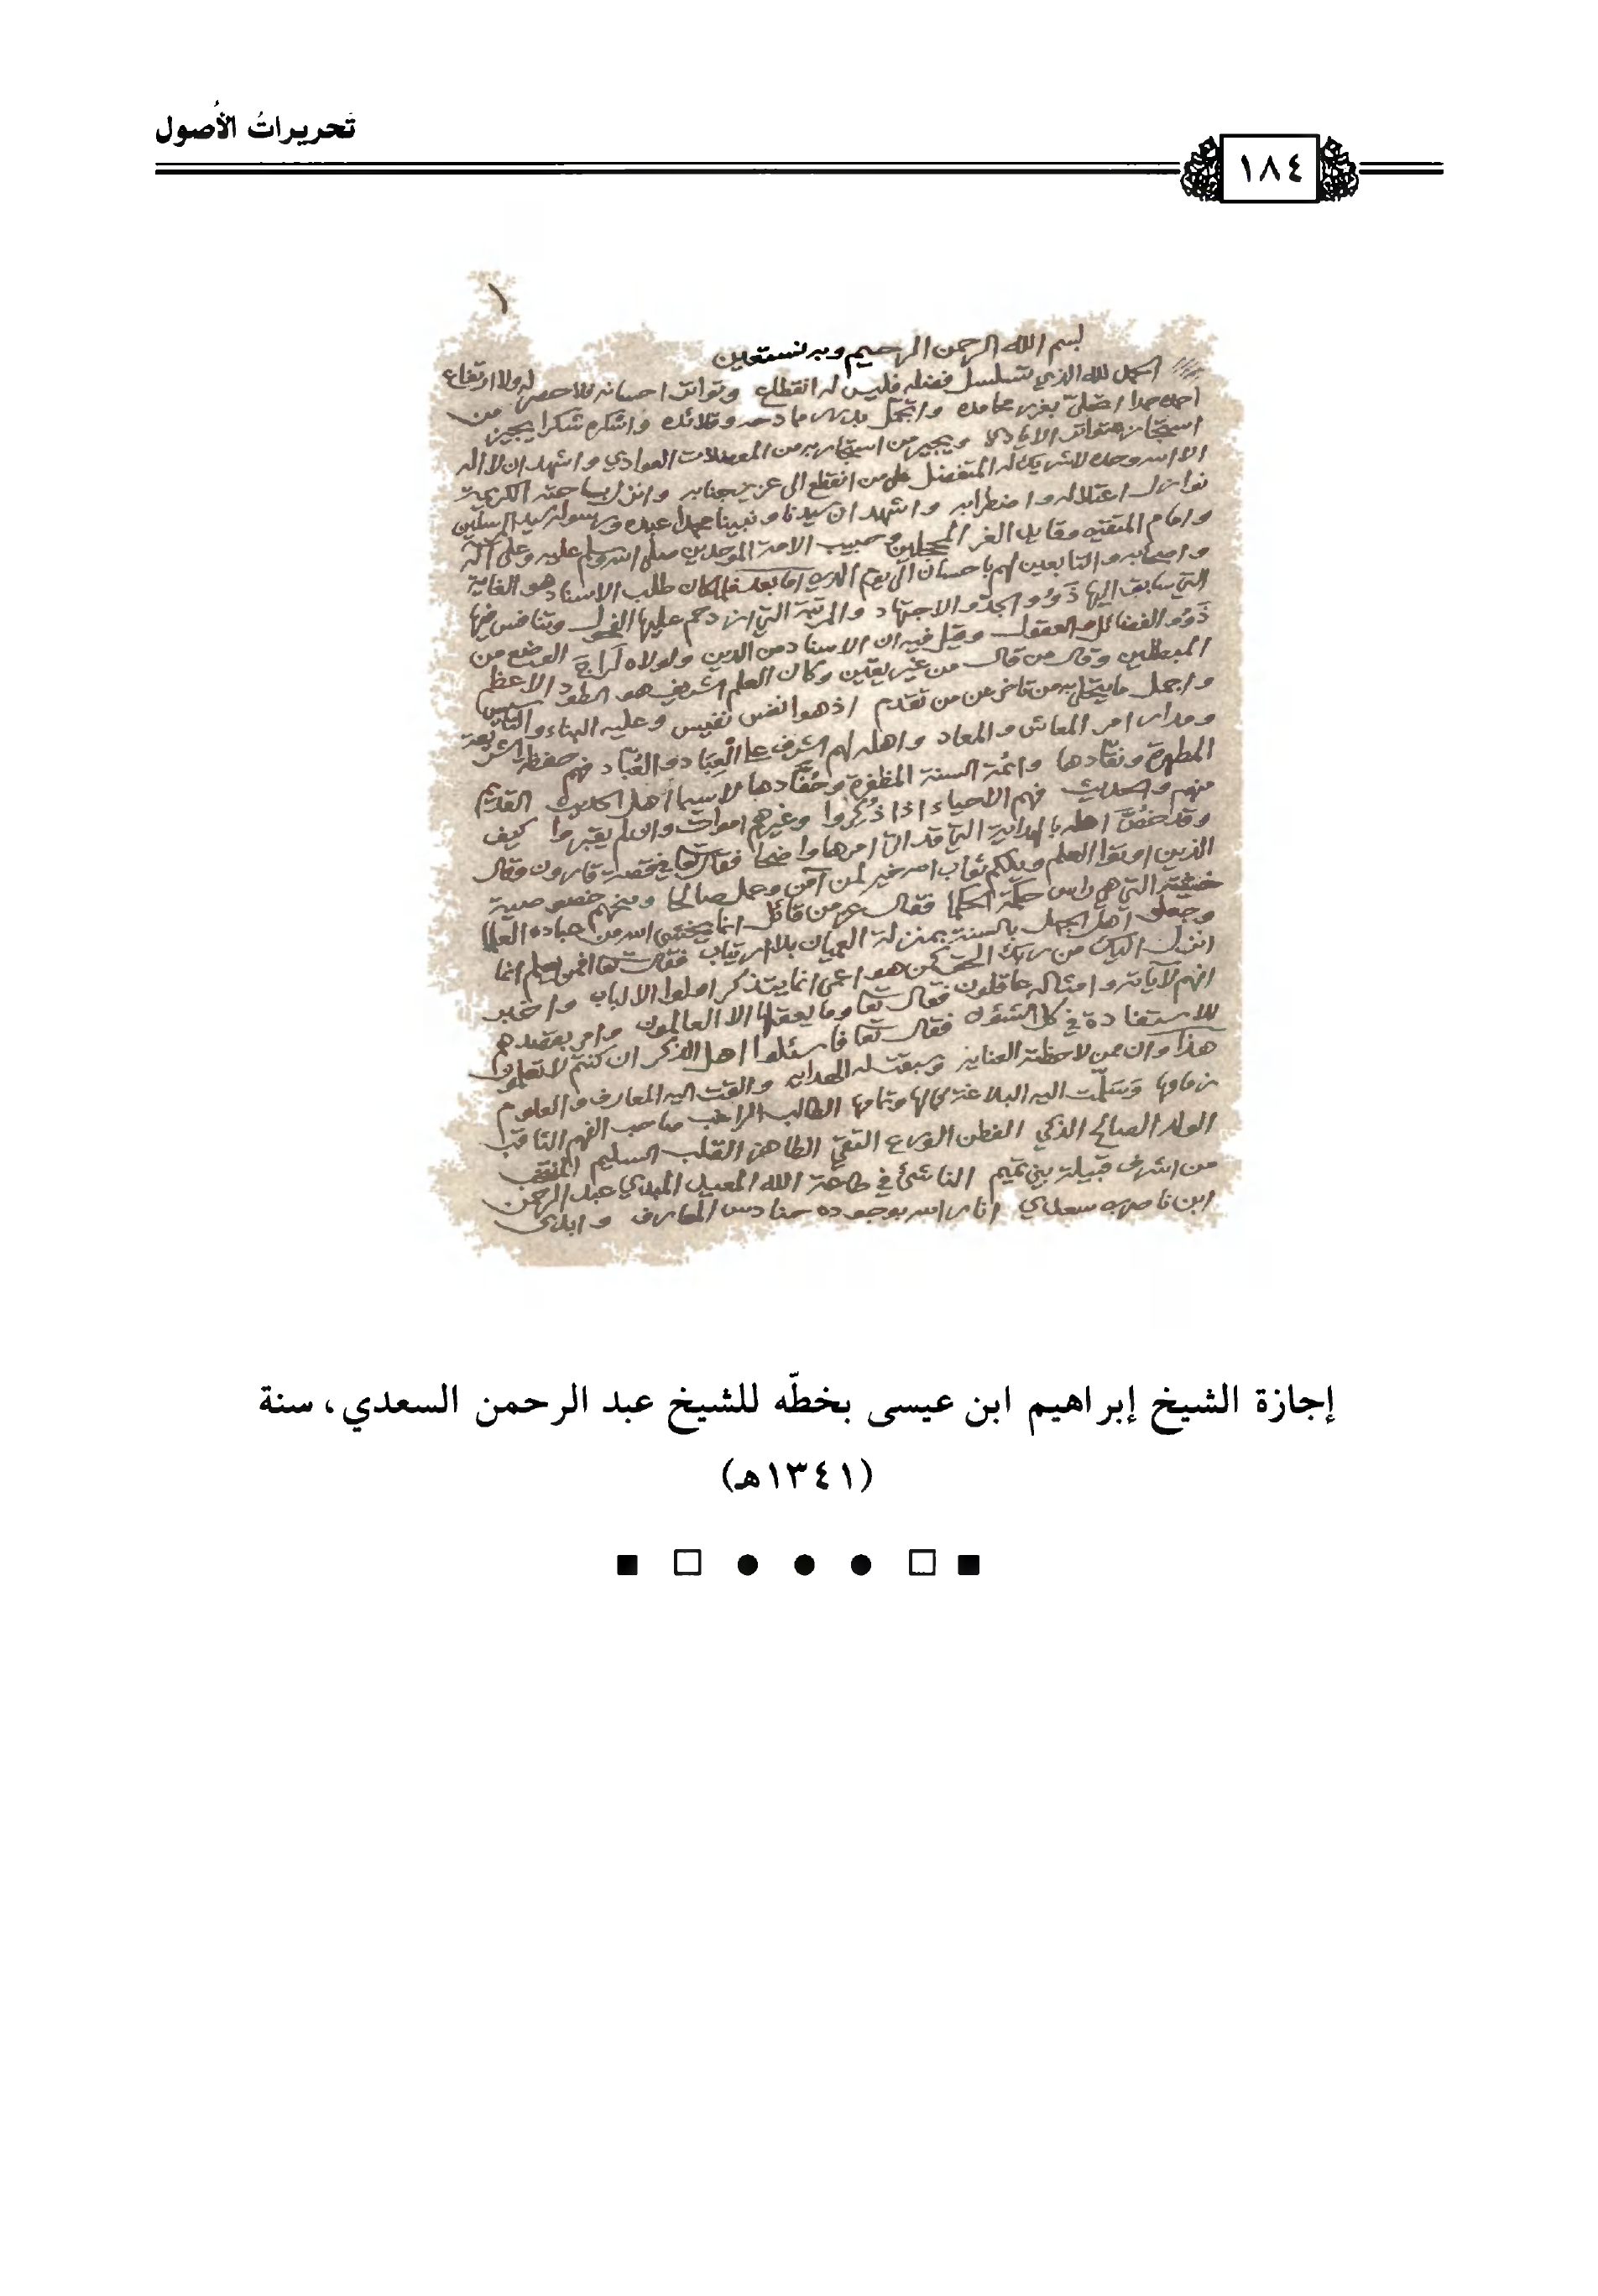 تَحريراتُ الأُصول
١٨٤
١
بسم الله الرحمن الرحيم وبه نستعين
الحمد لله الذي تسلسل فضله فليس له انقطاع وتواتر احسانه فلا حصر له ولا ارتفاع
احمده حمدا بغرر محامده واتجمل بدرر مادحه وقلائده واشكره شكرا يجيز من
استجاز متواتر الايادي ويجير من استجار به من المعضلات العوادي واشهد ان لا اله
الا الله وحده لا شريك له المتفضل على من انقطع الى عزيز جنابه وانزل بساحته الكريمة
نوازل اعتلاله واضطرابه واشهد ان سيدنا ونبينا محمدا عبده ورسوله سيد المرسلين
وامام المتقين وقايد الغر المحجلين وحبيب الامة الموحدين صلى الله وسلم عليه وعلى آله
واصحابه والتابعين لهم باحسان الى يوم الدين اما بعد فلما كان طلب الاسناد هو الغاية
التي سابق اليها ذَوُو الجد والاجتهاد والمرتبة التي ازدحم عليها الفحول وتنافس فيها
ذَوُو الفضائل والعقول وقيل فيه ان الاسناد من الدين ولولاه لراجَ الوضع من
المبطلين وقال من قال من غير يقين وكان العلم الشريف هو الطود الاعظم
واجمل ما يتحلى به من تاخر عن من تقدم اذ هو انفس نفيس وعليه البناء والتاسيس
ومدار امر المعاش والمعاد واهله لهم الشرف على العِبَاد والعُبّاد فهم حفظة الشريعة
المطهرة ونقّادها وائمة السنة المظفرة وحُفّادها لا سيما اهل الحديث القديم
منهم والحديث فهم الاحياء اذا ذُكِرُوا وغيرهم اموات وان لم يقبروا كيف
وقد خصَّ اهله بالهداية التي قد امرها واضحا فقال تعا في قصة قارون وقال
الذين اوتوا العلم ويلكم ثواب الله خير لمن آمن وعمل صالحا ومنحهم خصوصية
خشيته التي هي راس حكمة الحكما فقال عز من قائل انما يخشى الله من عباده العلما
وجعل اهل الجهل بالسنة بمنزلة العميان بلا ارتياب فقال تعا افمن يعلم انما
انزل اليك من ربك الحق كمن هو اعمى انما يتذكر اولوا الالباب واخبر
انهم لآياته وامثاله عاقلون فقال تعا وما يعقلها الا العالمون وامر بقصدهم
للاستفادة في كل الشؤون فقال تعا فاسئلوا اهل الذكر ان كنتم لا تعلمون
هذا وان من لاحظته العناية وسبقت له الهداية والقت اليه المعارف والعلوم
زمامها وَسَلّمت اليه البلاغة كمالها وتمامها الطالب الراغب صاحب الفهم الثاقب
الولد الصالح الذكي الفطن الورع التقي الطاهر القلب السليم المنتخب
من اشرف قبيلة بني تميم الناشئ في طاعة الله المعيد المبدي عبد الرحمن
ابن ناصر بن سعدي انار الله بوجوده حنادس المعارف وابدى
إجازة الشيخ إبراهيم ابن عيسى بخطّه للشيخ عبد الرحمن السعدي، سنة
(١٣٤١هـ)